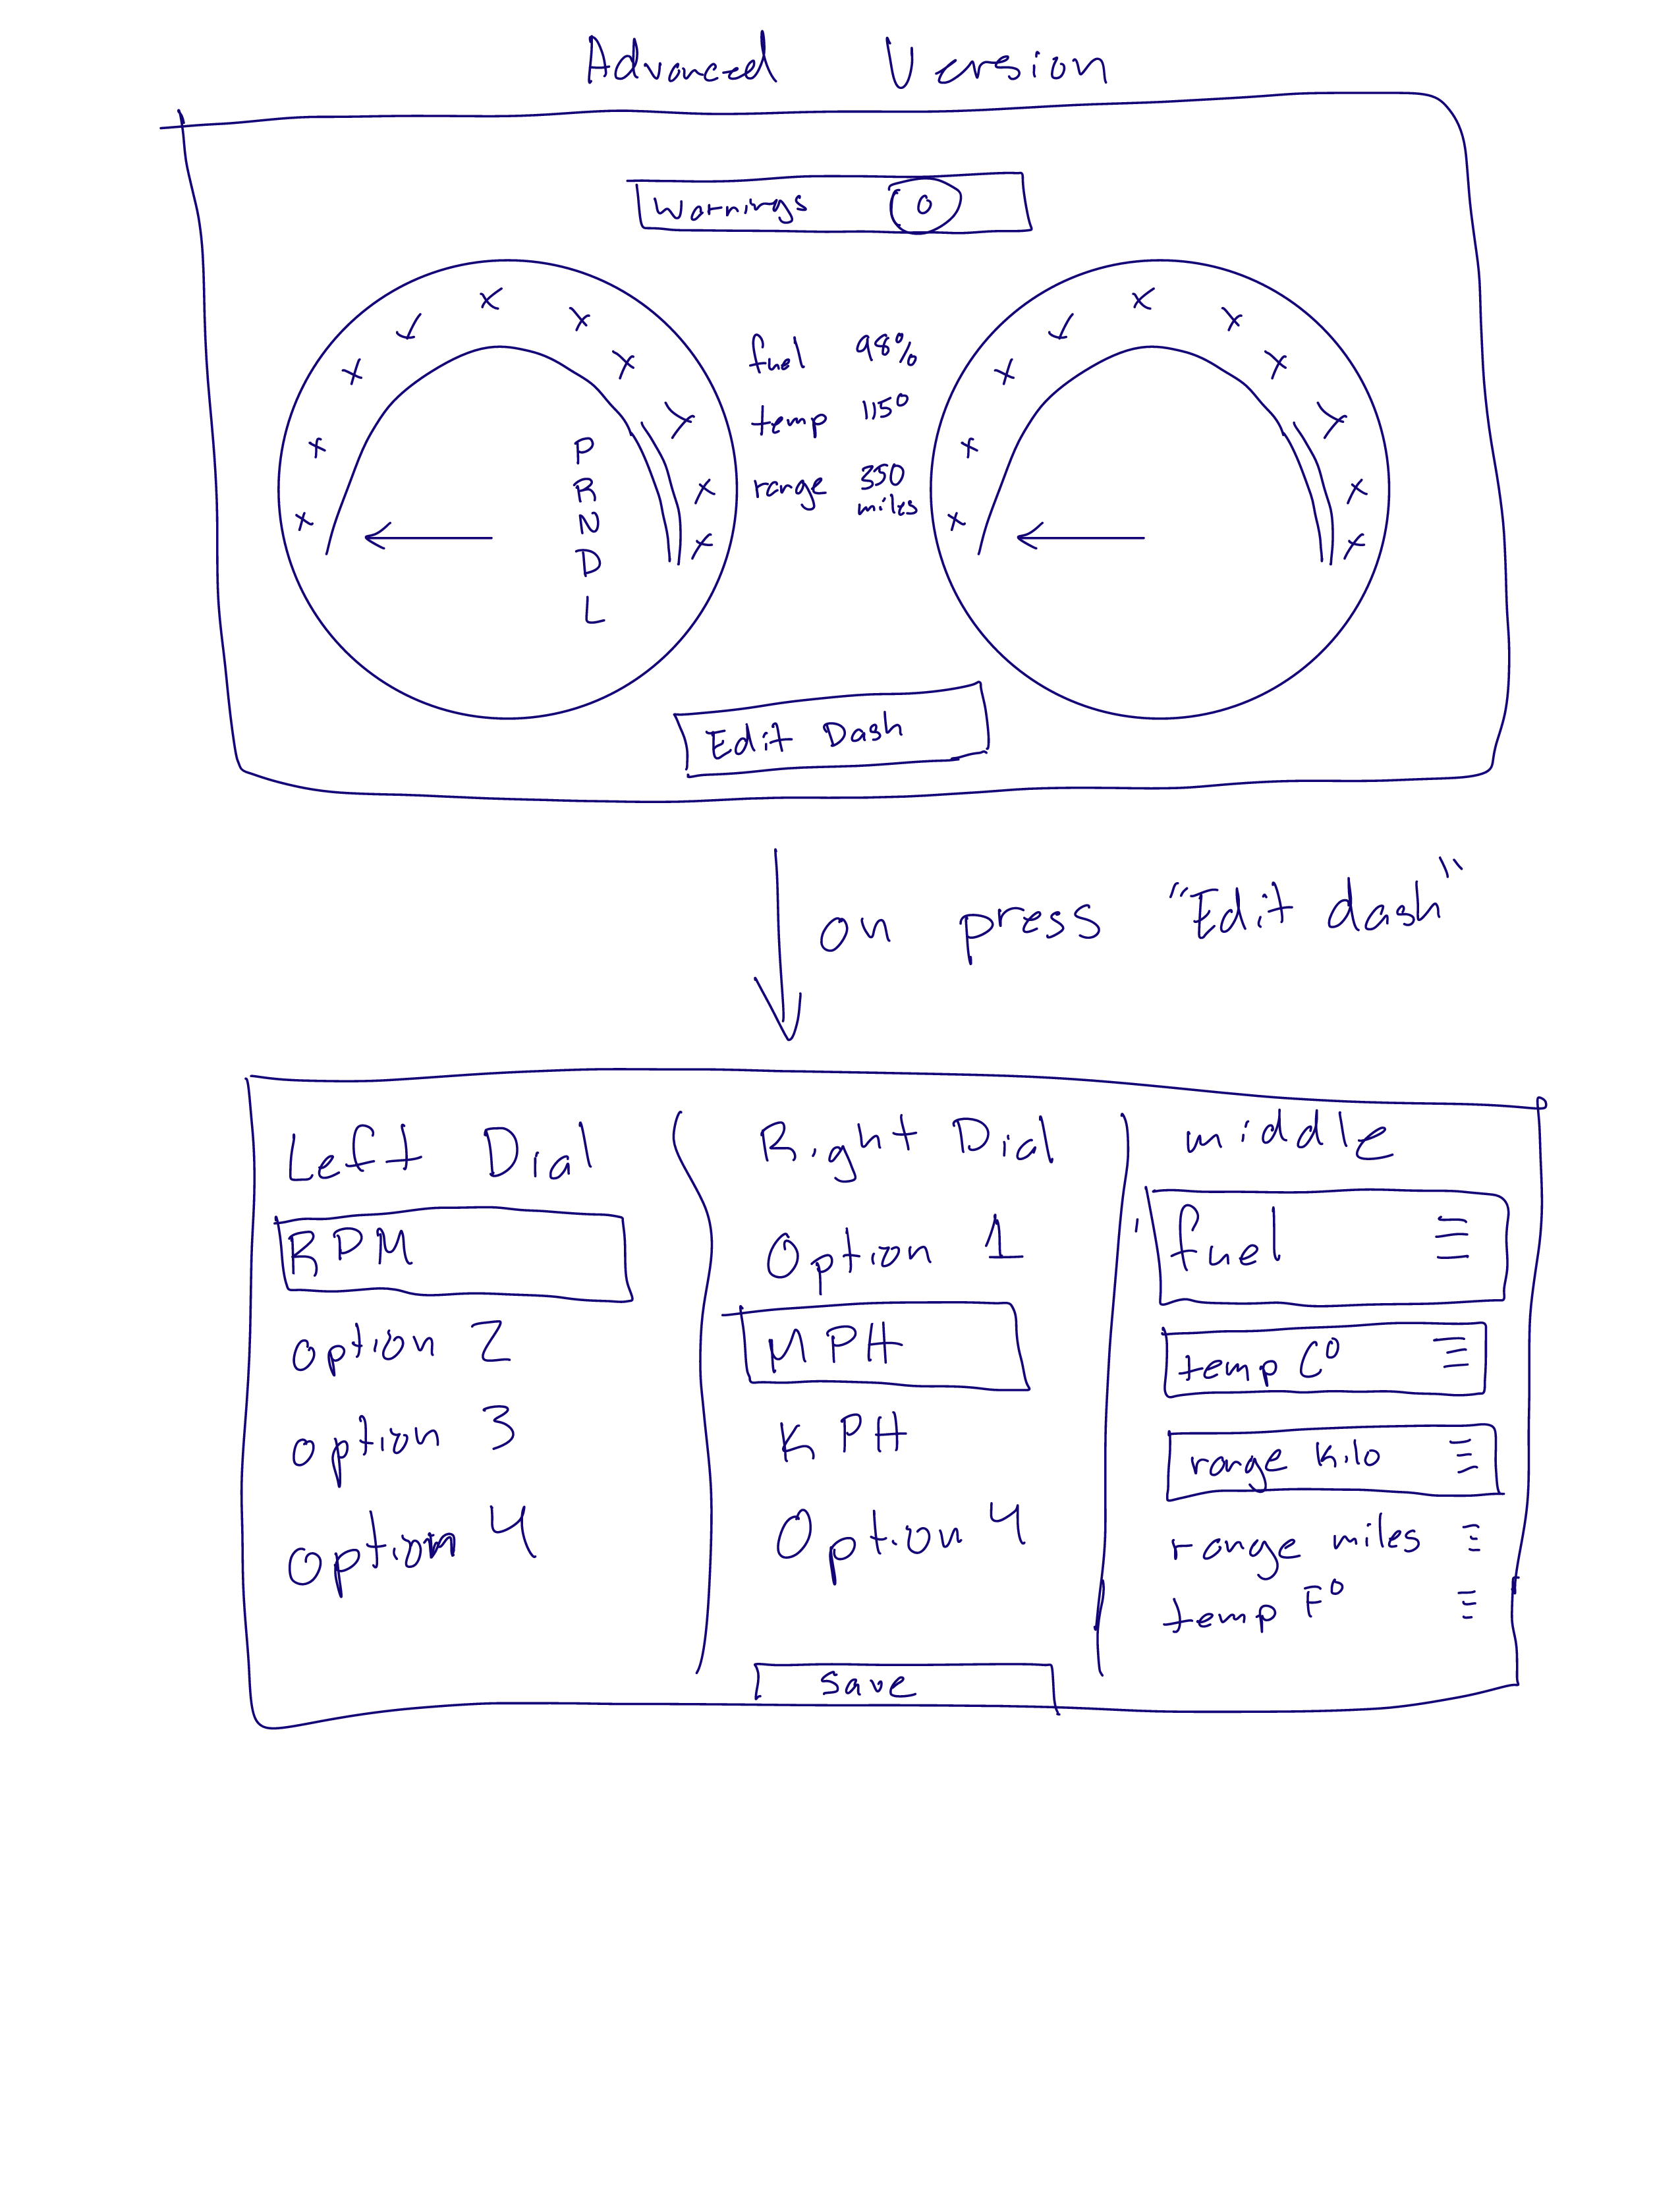 Advanced Version
Warnings 0
fuel 98%
temp 115°
range 350 miles
P
R
N
D
L
Edit Dash
on press "Edit dash"
Left Dial
RPM
option 2
option 3
option 4
Right Dial
Option 1
MPH
KPH
Option 4
middle
fuel
temp C°
range kilo
range miles
temp F°
Save